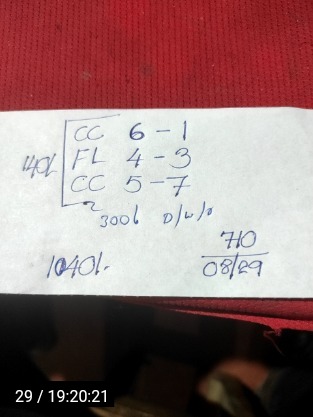 CC 6-1
140/ FL 4-3
CC 5-7
300/ D/W/D
1040/-
710
08/29
29 / 19:20:21